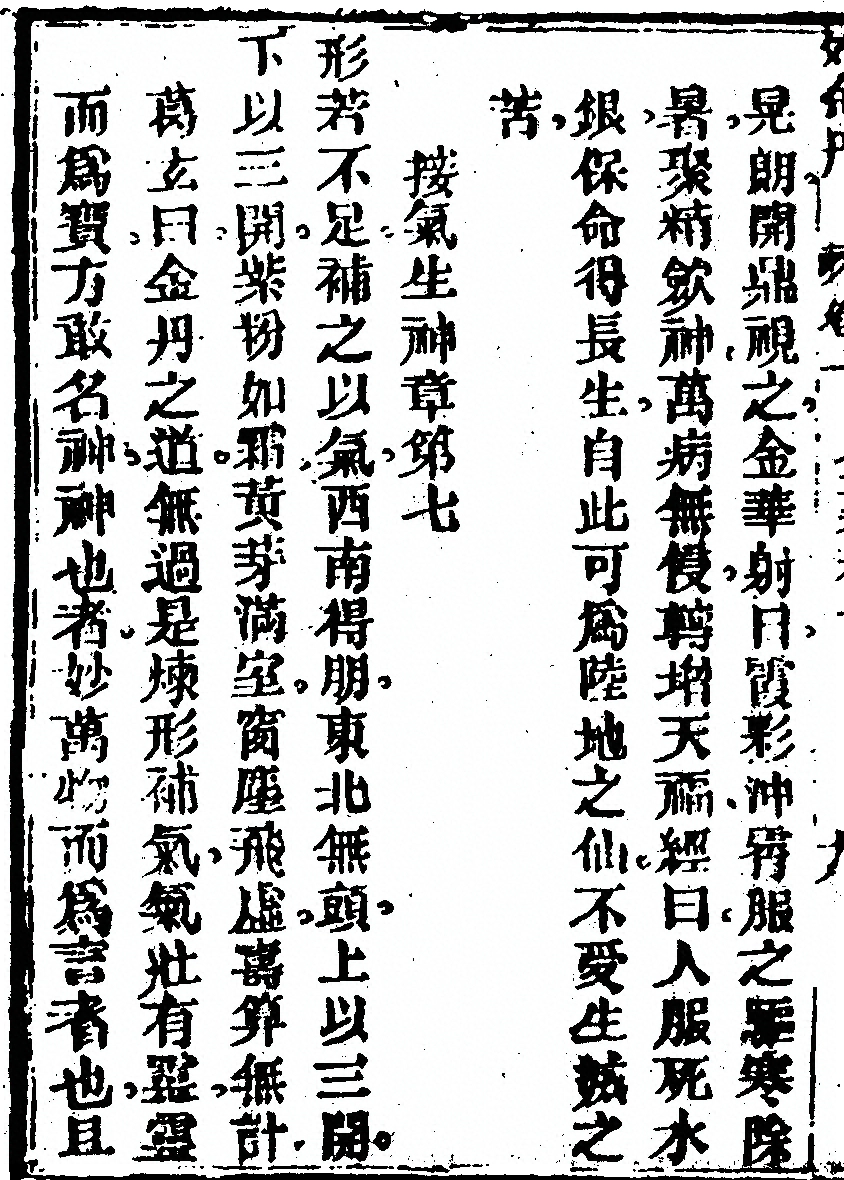 晃朗開鼎視之金華射日霞彩沖霄服之驅寒除
暑聚精歛神萬病無侵轉增天福經曰人服死水
銀保命得長生自此可爲陸地之仙不受生歿之
苦
接氣生神章第七
形若不足補之以氣西南得朋東北無頭上以三開
下以三開紫粉如霜黃芽滿室窗塵飛虛壽算無計
葛玄曰金丹之道無過是煉形補氣氣壯有靈靈
而爲寶方敢名神神也者妙萬物而爲言者也且